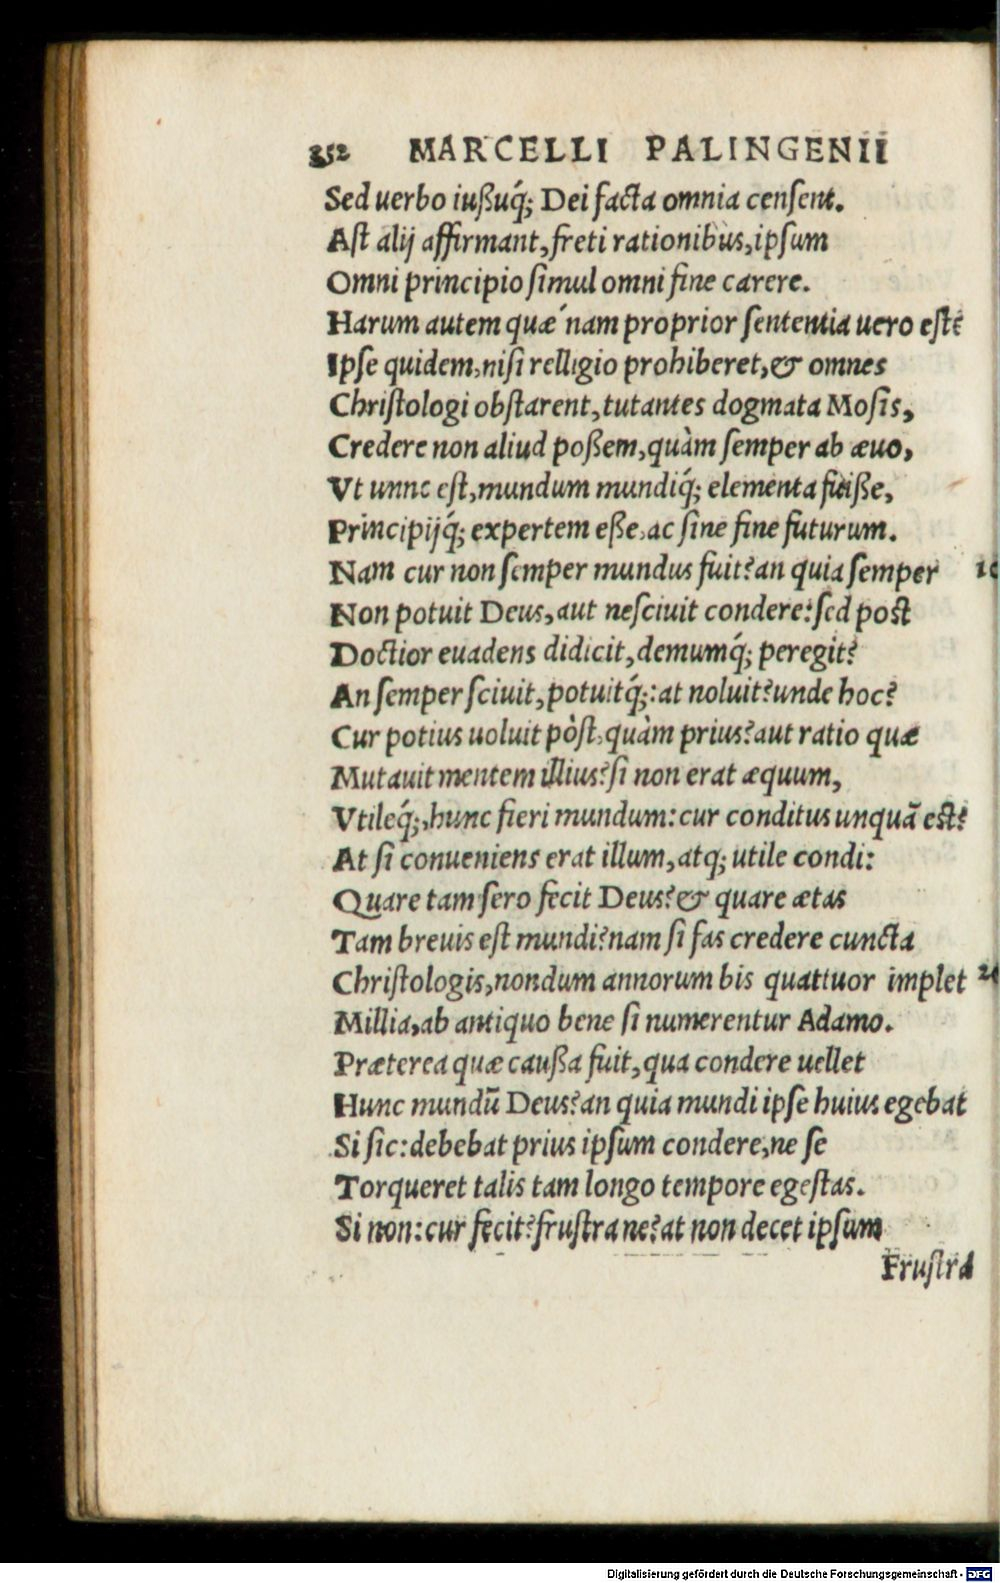 352 MARCELLI PALINGENII
Sed uerbo iußuq́; Dei facta omnia censent.
Ast alij affirmant, freti rationibus, ipsum
Omni principio simul omni fine carere.
Harum autem quæ nam proprior sententia uero est?
Ipse quidem, nisi relligio prohiberet, & omnes
Christologi obstarent, tutantes dogmata Mosis,
Credere non aliud poßem, quàm semper ab æuo,
Vt unnc est, mundum mundiq́; elementa fuiße,
Principijq́; expertem eße, ac sine fine futurum.
Nam cur non semper mundus fuit? an quia semper 10
Non potuit Deus, aut nesciuit condere: sed post
Doctior euadens didicit, demumq́; peregit?
An semper sciuit, potuitq́;: at noluit? unde hoc?
Cur potius uoluit pòst, quàm prius? aut ratio quæ
Mutauit mentem illius? si non erat æquum,
Vtileq́;, hunc fieri mundum: cur conditus unquā est?
At si conueniens erat illum, atq; utile condi:
Quare tam sero fecit Deus? & quare ætas
Tam breuis est mundi? nam si fas credere cuncta
Christologis, nondum annorum bis quattuor implet 20
Millia, ab antiquo bene si numerentur Adamo.
Præterea quæ caußa fuit, qua condere uellet
Hunc mundū Deus? an quia mundi ipse huius egebat
Si sic: debebat prius ipsum condere, ne se
Torqueret talis tam longo tempore egestas.
Si non: cur fecit? frustra ne? at non decet ipsum
Frustra
Digitalisierung gefördert durch die Deutsche Forschungsgemeinschaft - DFG